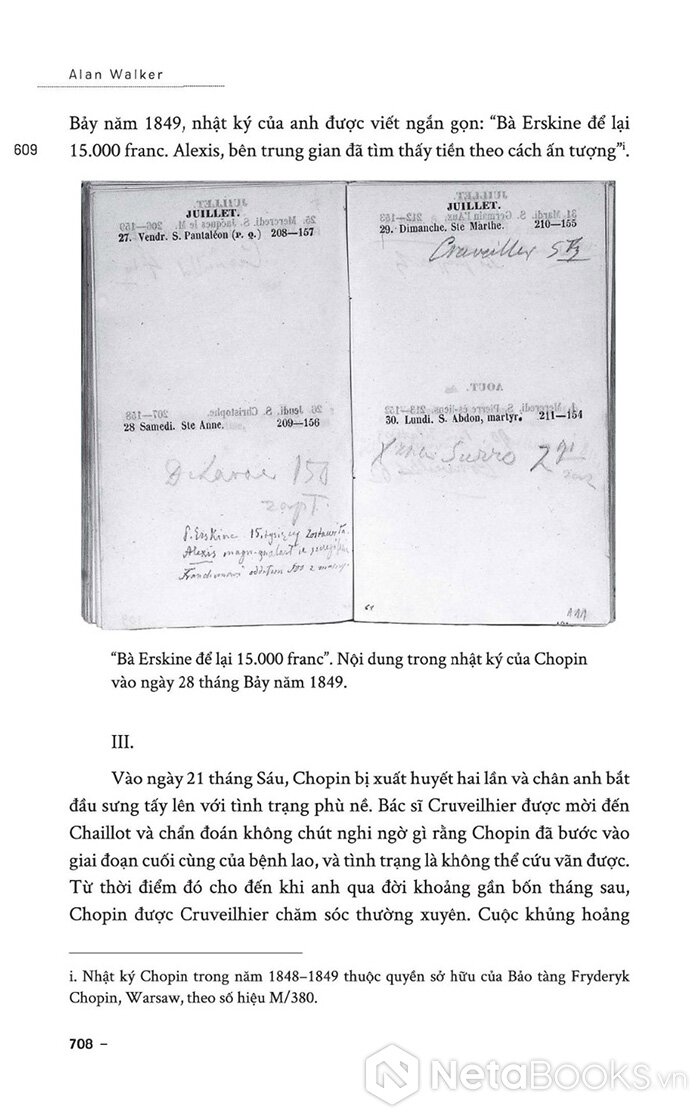 Alan Walker
Bảy năm 1849, nhật ký của anh được viết ngắn gọn: “Bà Erskine để lại
609
15.000 franc. Alexis, bên trung gian đã tìm thấy tiền theo cách ấn tượng”i.
JUILLET.
27. Vendr. S. Pantaléon (P. Q.) 208—157
28 Samedi. Ste Anne. 209—156
150
P. Erskine 15
Alexis
JUILLET.
29. Dimanche. Ste Marthe. 210—155
30. Lundi. S. Abdon, martyr. 211—154
“Bà Erskine để lại 15.000 franc”. Nội dung trong nhật ký của Chopin
vào ngày 28 tháng Bảy năm 1849.
III.
Vào ngày 21 tháng Sáu, Chopin bị xuất huyết hai lần và chân anh bắt
đầu sưng tấy lên với tình trạng phù nề. Bác sĩ Cruveilhier được mời đến
Chaillot và chẩn đoán không chút nghi ngờ gì rằng Chopin đã bước vào
giai đoạn cuối cùng của bệnh lao, và tình trạng là không thể cứu vãn được.
Từ thời điểm đó cho đến khi anh qua đời khoảng gần bốn tháng sau,
Chopin được Cruveilhier chăm sóc thường xuyên. Cuộc khủng hoảng
i. Nhật ký Chopin trong năm 1848–1849 thuộc quyền sở hữu của Bảo tàng Fryderyk
Chopin, Warsaw, theo số hiệu M/380.
708 –
N NetaBooks.vn